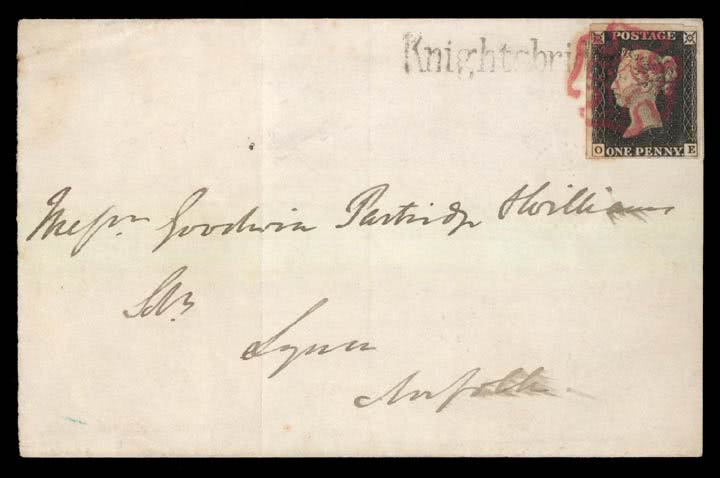 Knightsbri
POSTAGE
O ONE PENNY E
Messrs Goodwin Partridge & Williams
Lynn
Norfolk